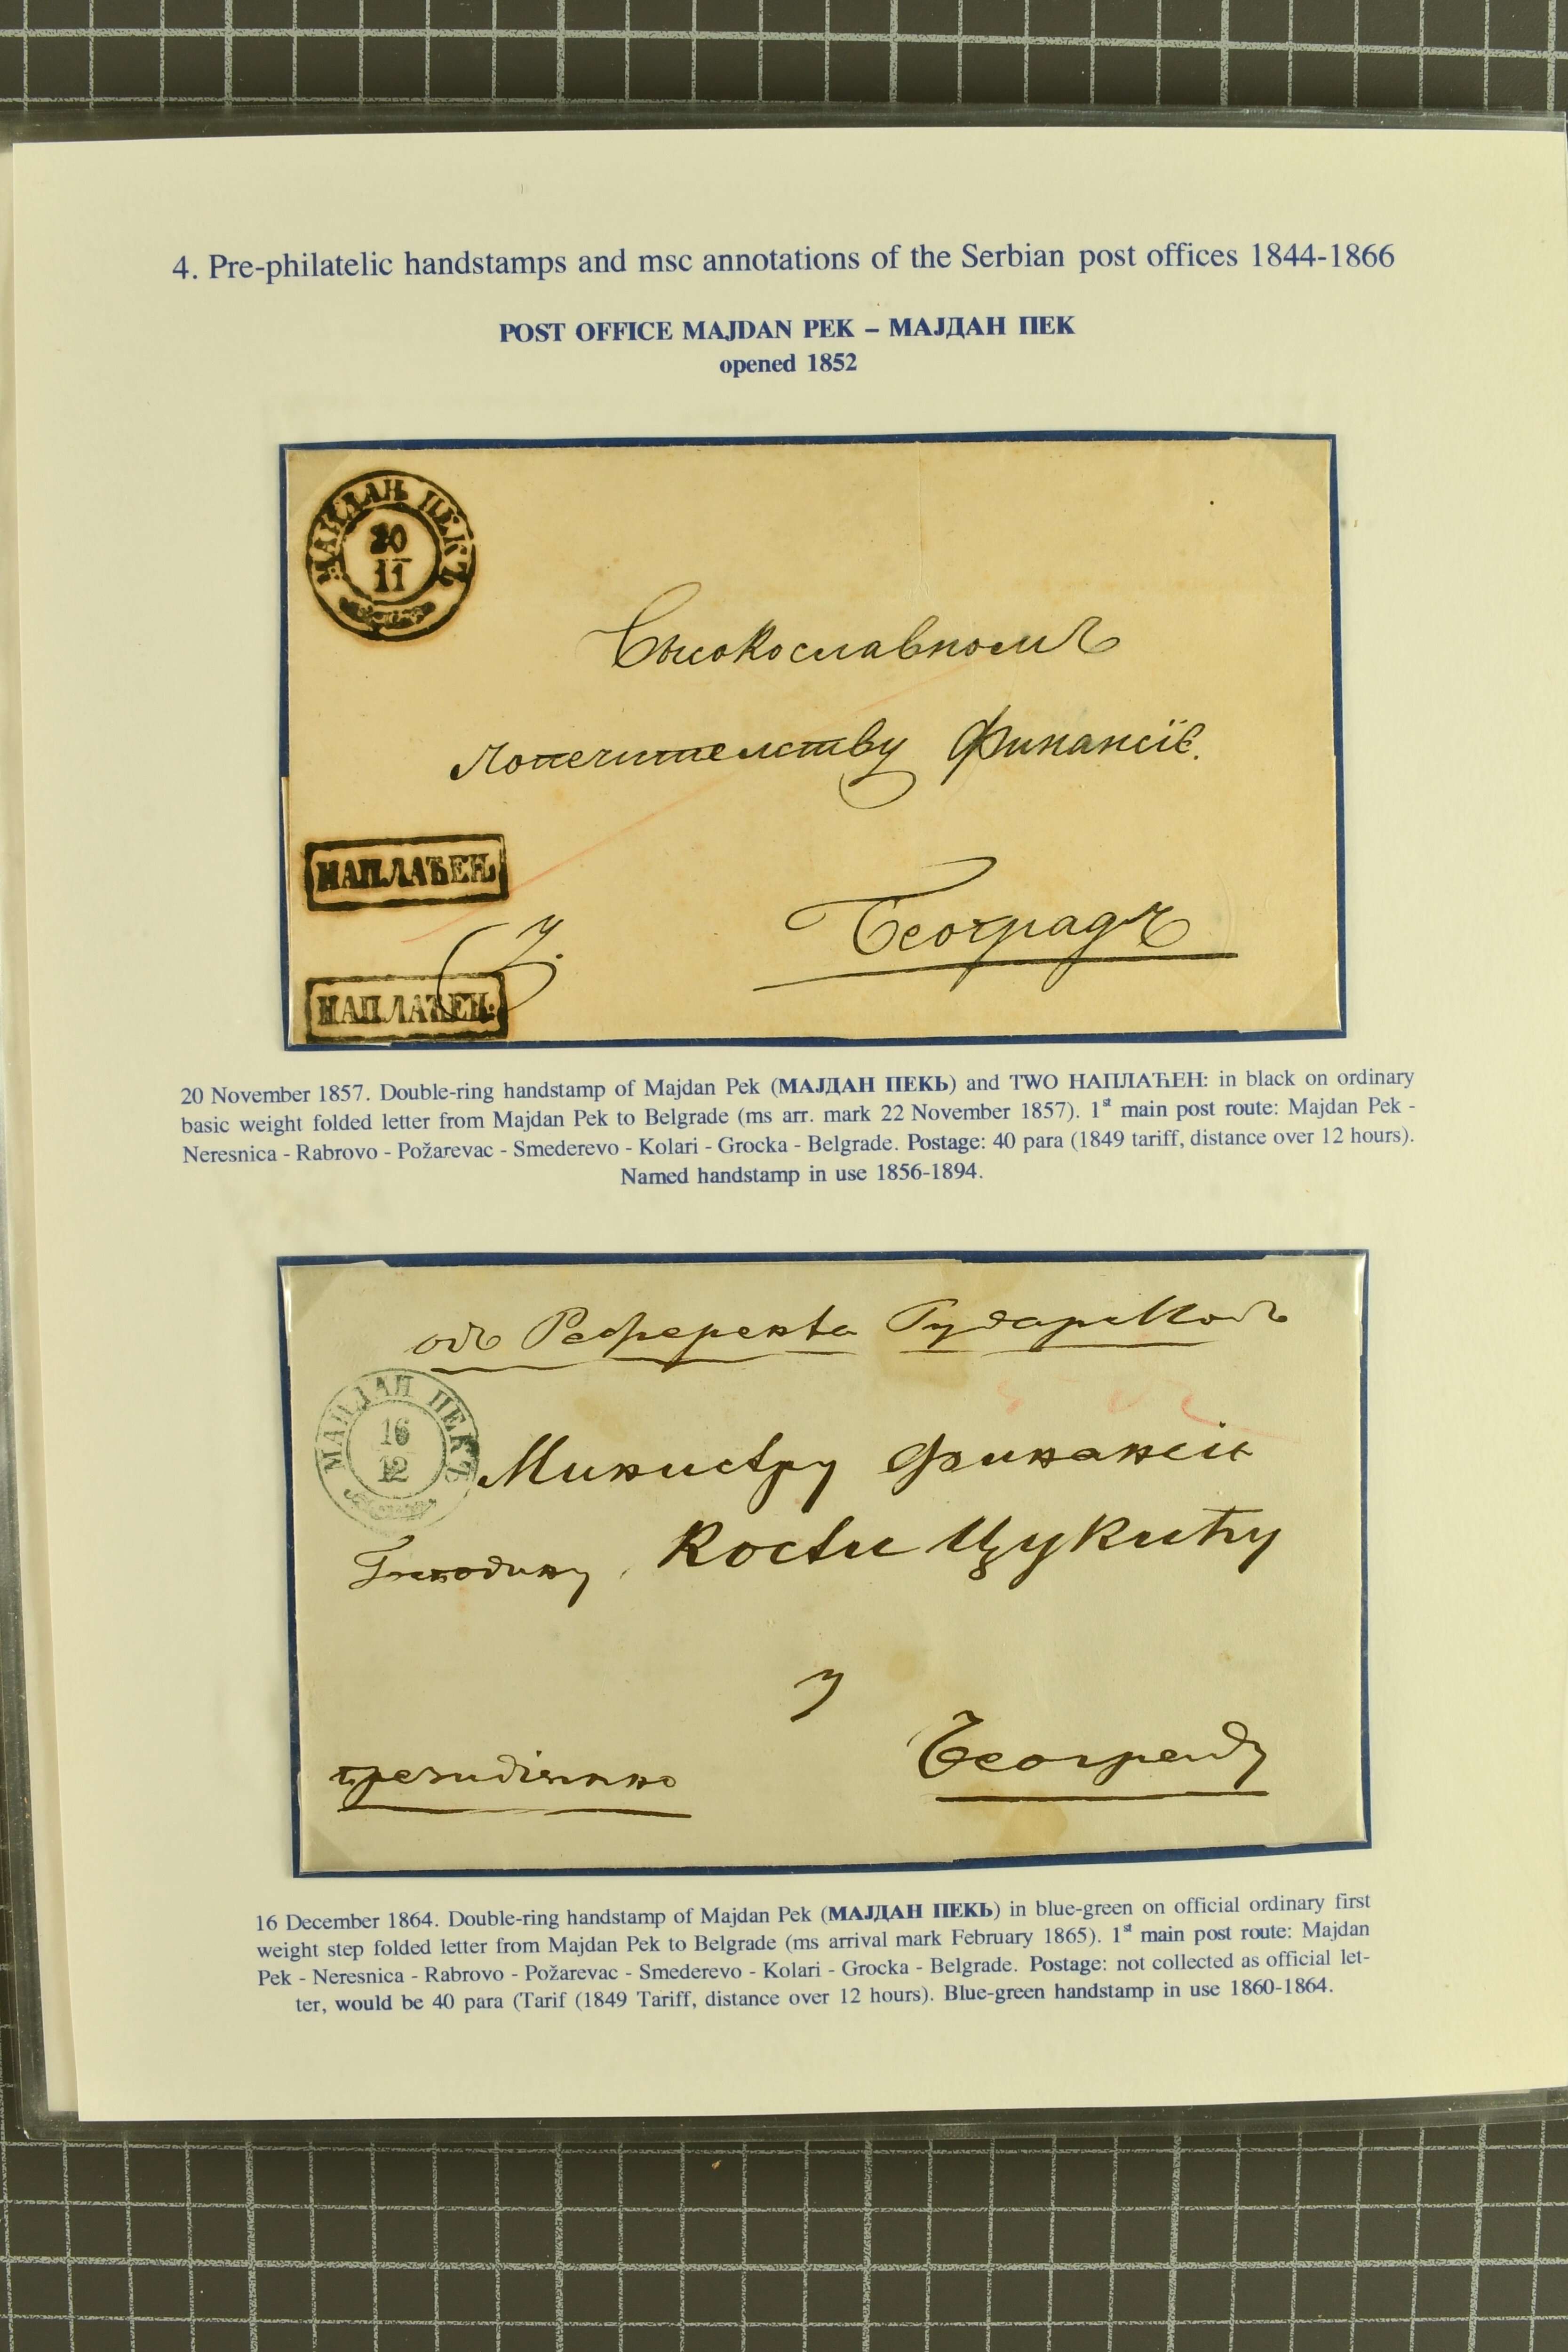 4. Pre-philatelic handstamps and msc annotations of the Serbian post offices 1844-1866
POST OFFICE MAJDAN PEK – МАЈДАН ПЕК
opened 1852
МАИДАН ПЕКЪ
20
11
Высокославномъ
Попечителству Финансіе.
НАПЛАЋЕН:
У.
Београдъ
НАПЛАЋЕН:
20 November 1857. Double-ring handstamp of Majdan Pek (МАЈДАН ПЕКЬ) and TWO НАПЛАЋЕН: in black on ordinary
basic weight folded letter from Majdan Pek to Belgrade (ms arr. mark 22 November 1857). 1st main post route: Majdan Pek -
Neresnica - Rabrovo - Požarevac - Smederevo - Kolari - Grocka - Belgrade. Postage: 40 para (1849 tariff, distance over 12 hours).
Named handstamp in use 1856-1894.
одъ Референта Рударскогъ
МАИДАН ПЕКЪ
16
12
Министру Финансіе
Господину Кости Цукићу
у
Београду
президіално
16 December 1864. Double-ring handstamp of Majdan Pek (МАЈДАН ПЕКЬ) in blue-green on official ordinary first
weight step folded letter from Majdan Pek to Belgrade (ms arrival mark February 1865). 1st main post route: Majdan
Pek - Neresnica - Rabrovo - Požarevac - Smederevo - Kolari - Grocka - Belgrade. Postage: not collected as official let-
ter, would be 40 para (Tarif (1849 Tariff, distance over 12 hours). Blue-green handstamp in use 1860-1864.